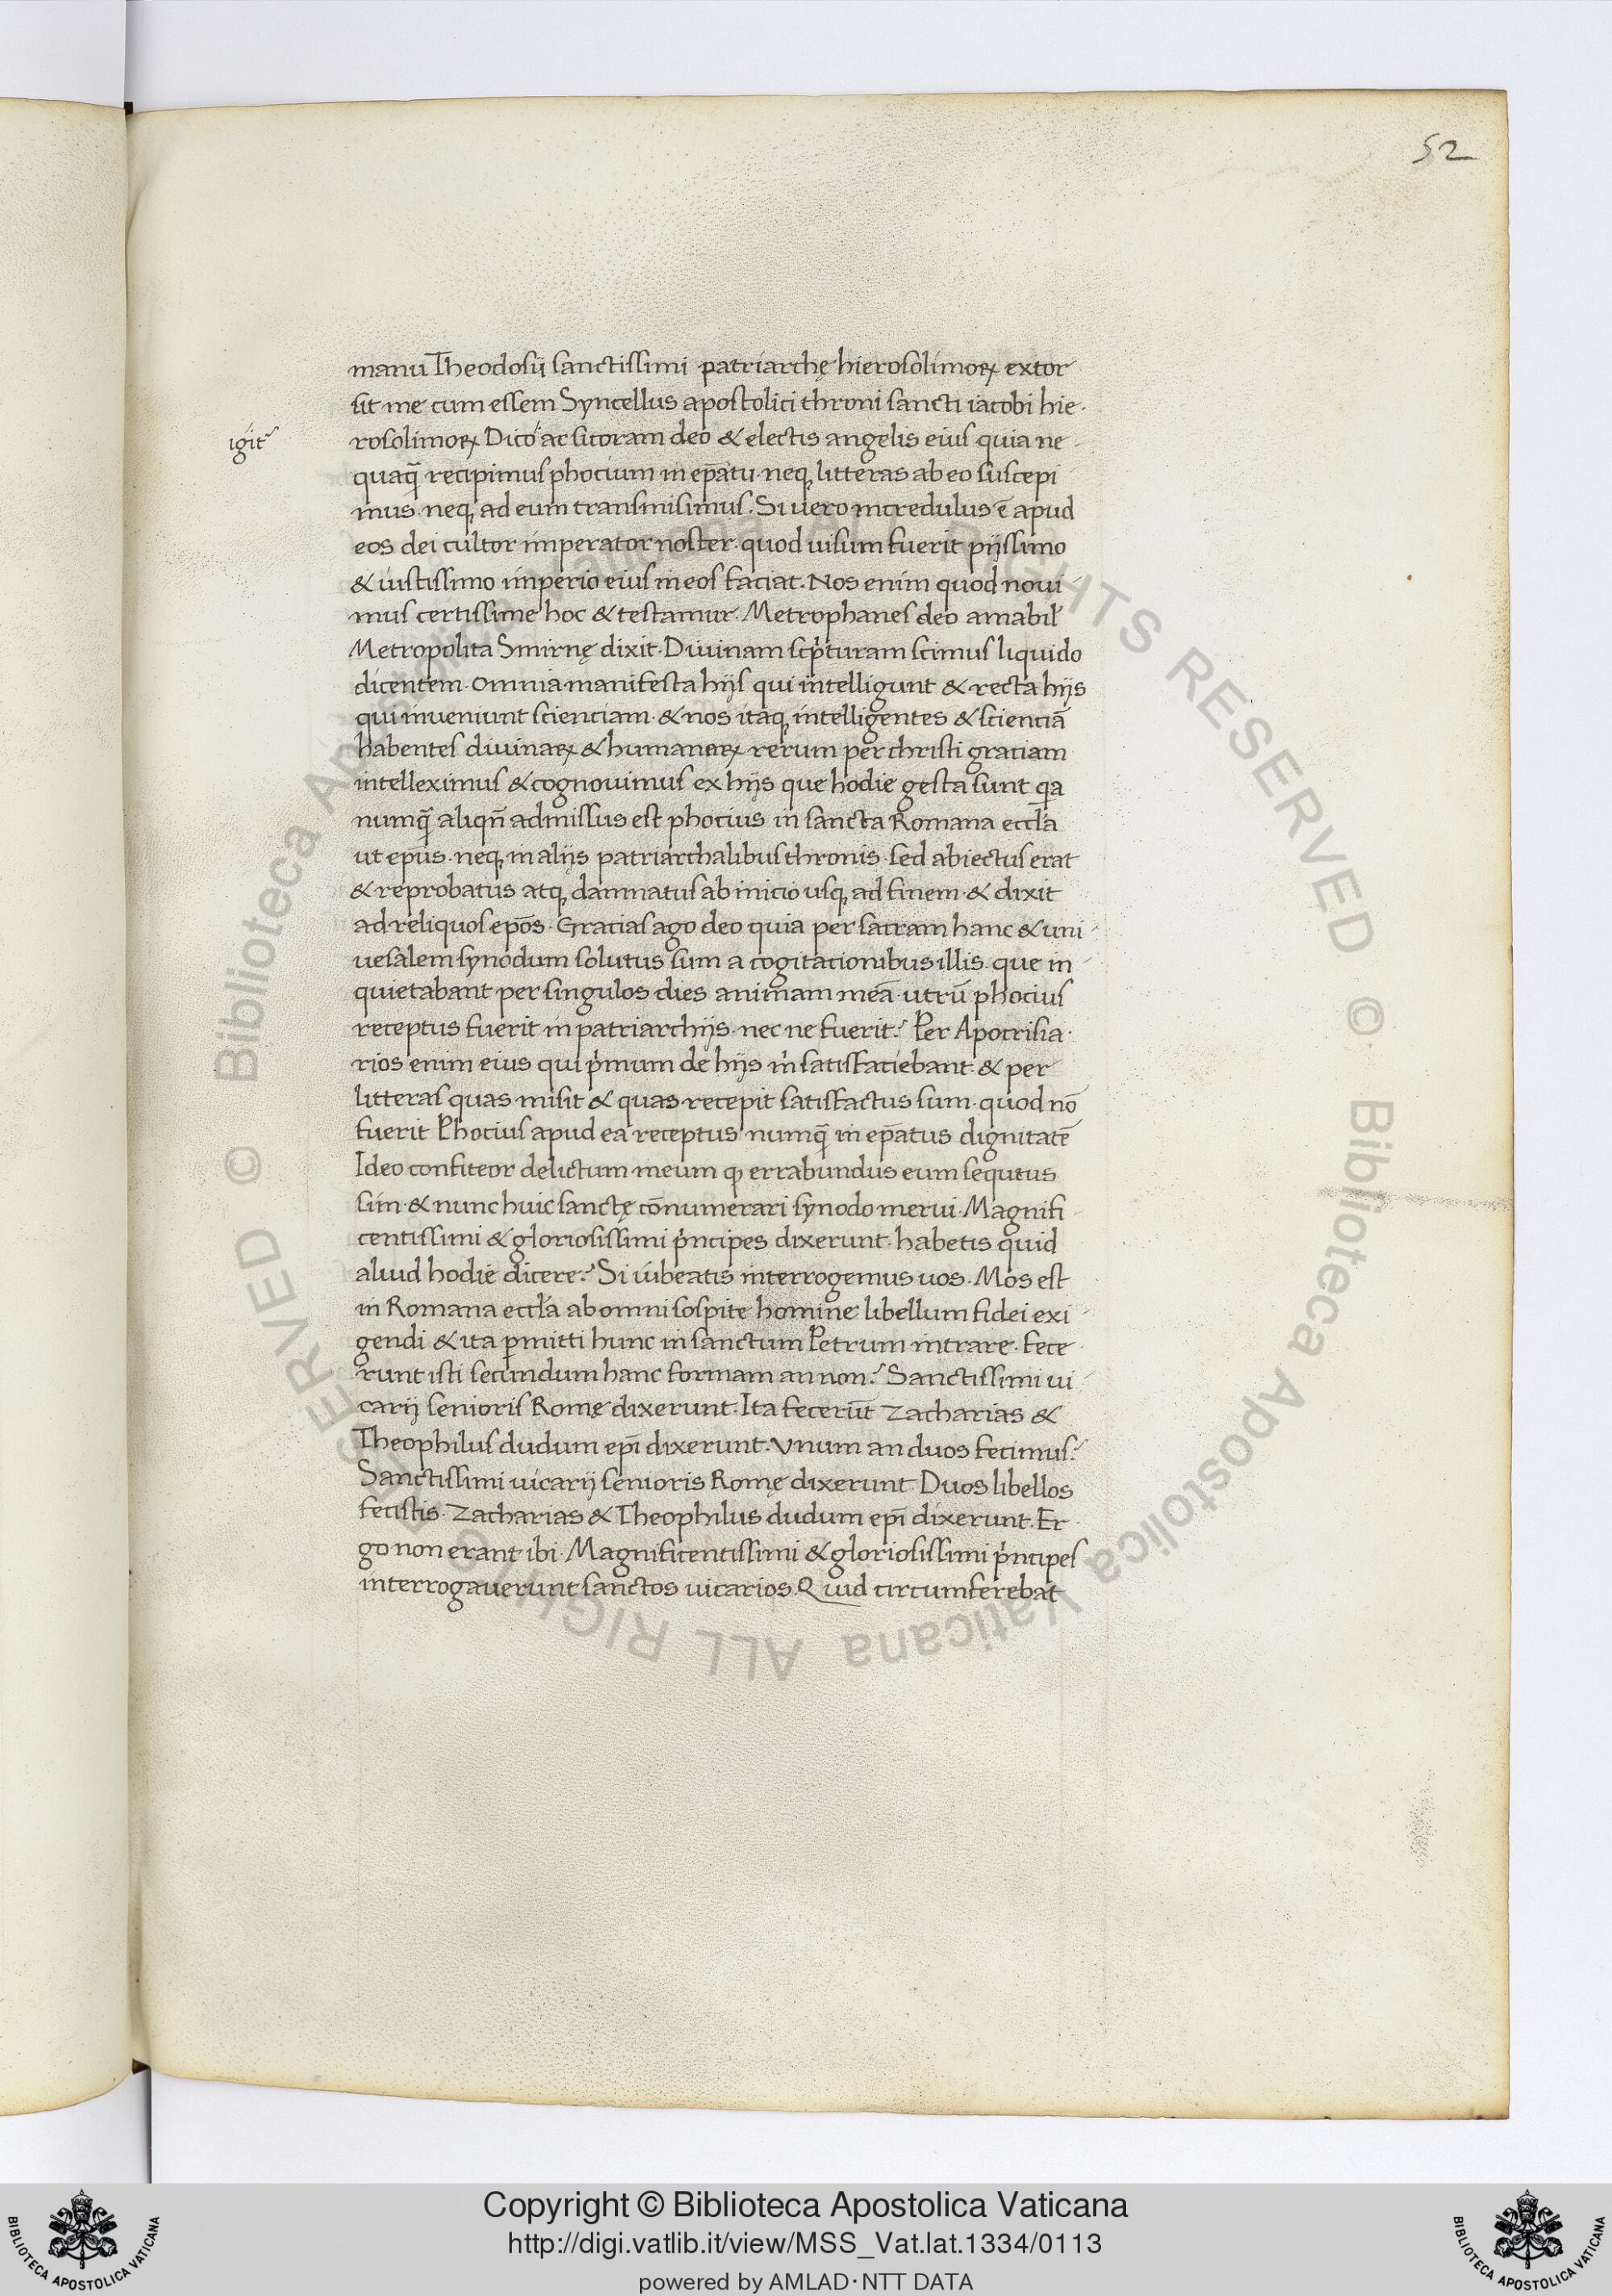 52
manu Theodosii sanctissimi patriarchę hierosolimoꝝ extor
sit me cum essem Syncellus apostolici throni sancti iacobi hie-
igit᷑
rosolimoꝝ Dico ac si coram deo & electis angelis eius quia ne-
quaq̄ recipimus phocium in ep̄atu. neq; litteras ab eo suscepi
mus. neq; ad eum transmisimus. Si uero incredulus ē apud
eos dei cultor imperator noster. quod uisum fuerit pijssimo
& iustissimo imperio eius in eos faciat. Nos enim quod noui-
mus certissime hoc & testamur. Metrophanes deo amabil᷑
Metropolita Smirnę dixit. Diuinam scp̓turam scimus liquido
dicentem. omnia manifesta hijs qui intelligunt & recta hijs
qui inueniunt scienciam. & nos itaq; intelligentes & scienciā
habentes diuinaꝝ & humanaꝝ rerum per christi gratiam
intelleximus & cognouimus ex hijs que hodie gesta sunt qa
numq̄ aliqn̄ admissus est phocius in sancta Romana eccl̄a
ut ep̄us. neq; in alijs patriarchalibus thronis. sed abiectus erat
& reprobatus atq; damnatus ab inicio usq; ad finem. & dixit
ad reliquos ep̄os. Gracias ago deo quia per sacram hanc & uni-
uesalem synodum solutus sum a cogitacionibus illis. que in-
quietabant per singulos dies animam meā. utrū phocius
receptus fuerit in patriarchijs. nec ne fuerit? Per Apocrisia-
rios enim eius qui p̓mum de hijs m̓ satisfaciebant & per
litteras quas misit & quas recepit satisfactus sum. quod nō
fuerit Phocius apud ea receptus numq̄ in ep̄atus dignitatē
Ideo confiteor delictum meum ꝙ errabundus eum sequtus
sim. & nunc huic sanctę cōnumerari synodo merui. Magnifi-
centissimi & gloriosissimi p̓ncipes dixerunt. habetis quid
aliud hodie dicere? Si iubeatis interrogemus uos. Mos est
in Romana eccl̄a ab omni sospite homine libellum fidei exi-
gendi & ita ꝑmitti hunc in sanctum Petrum intrare. fece-
runt isti secundum hanc formam an non? Sanctissimi ui-
carij senioris Romę dixerunt. Ita fecerūt Zacharias &
Theophilus dudum ep̄i dixerunt. Vnum an duos fecimus?
Sanctissimi uicarij senioris Romę dixerunt Duos libellos
fecistis. Zacharias & Theophilus dudum ep̄i dixerunt. Er-
go non erant ibi. Magnificentissimi & gloriosissimi p̓ncipes
interrogauerunt sanctos uicarios. Quid circumferebāt
© Biblioteca Apostolica Vaticana ALL RIGHTS RESERVED © Biblioteca Apostolica Vaticana ALL RIGHTS RESERVED
Copyright © Biblioteca Apostolica Vaticana
http://digi.vatlib.it/view/MSS_Vat.lat.1334/0113
powered by AMLAD·NTT DATA
BIBLIOTECA APOSTOLICA VATICANA
BIBLIOTECA APOSTOLICA VATICANA